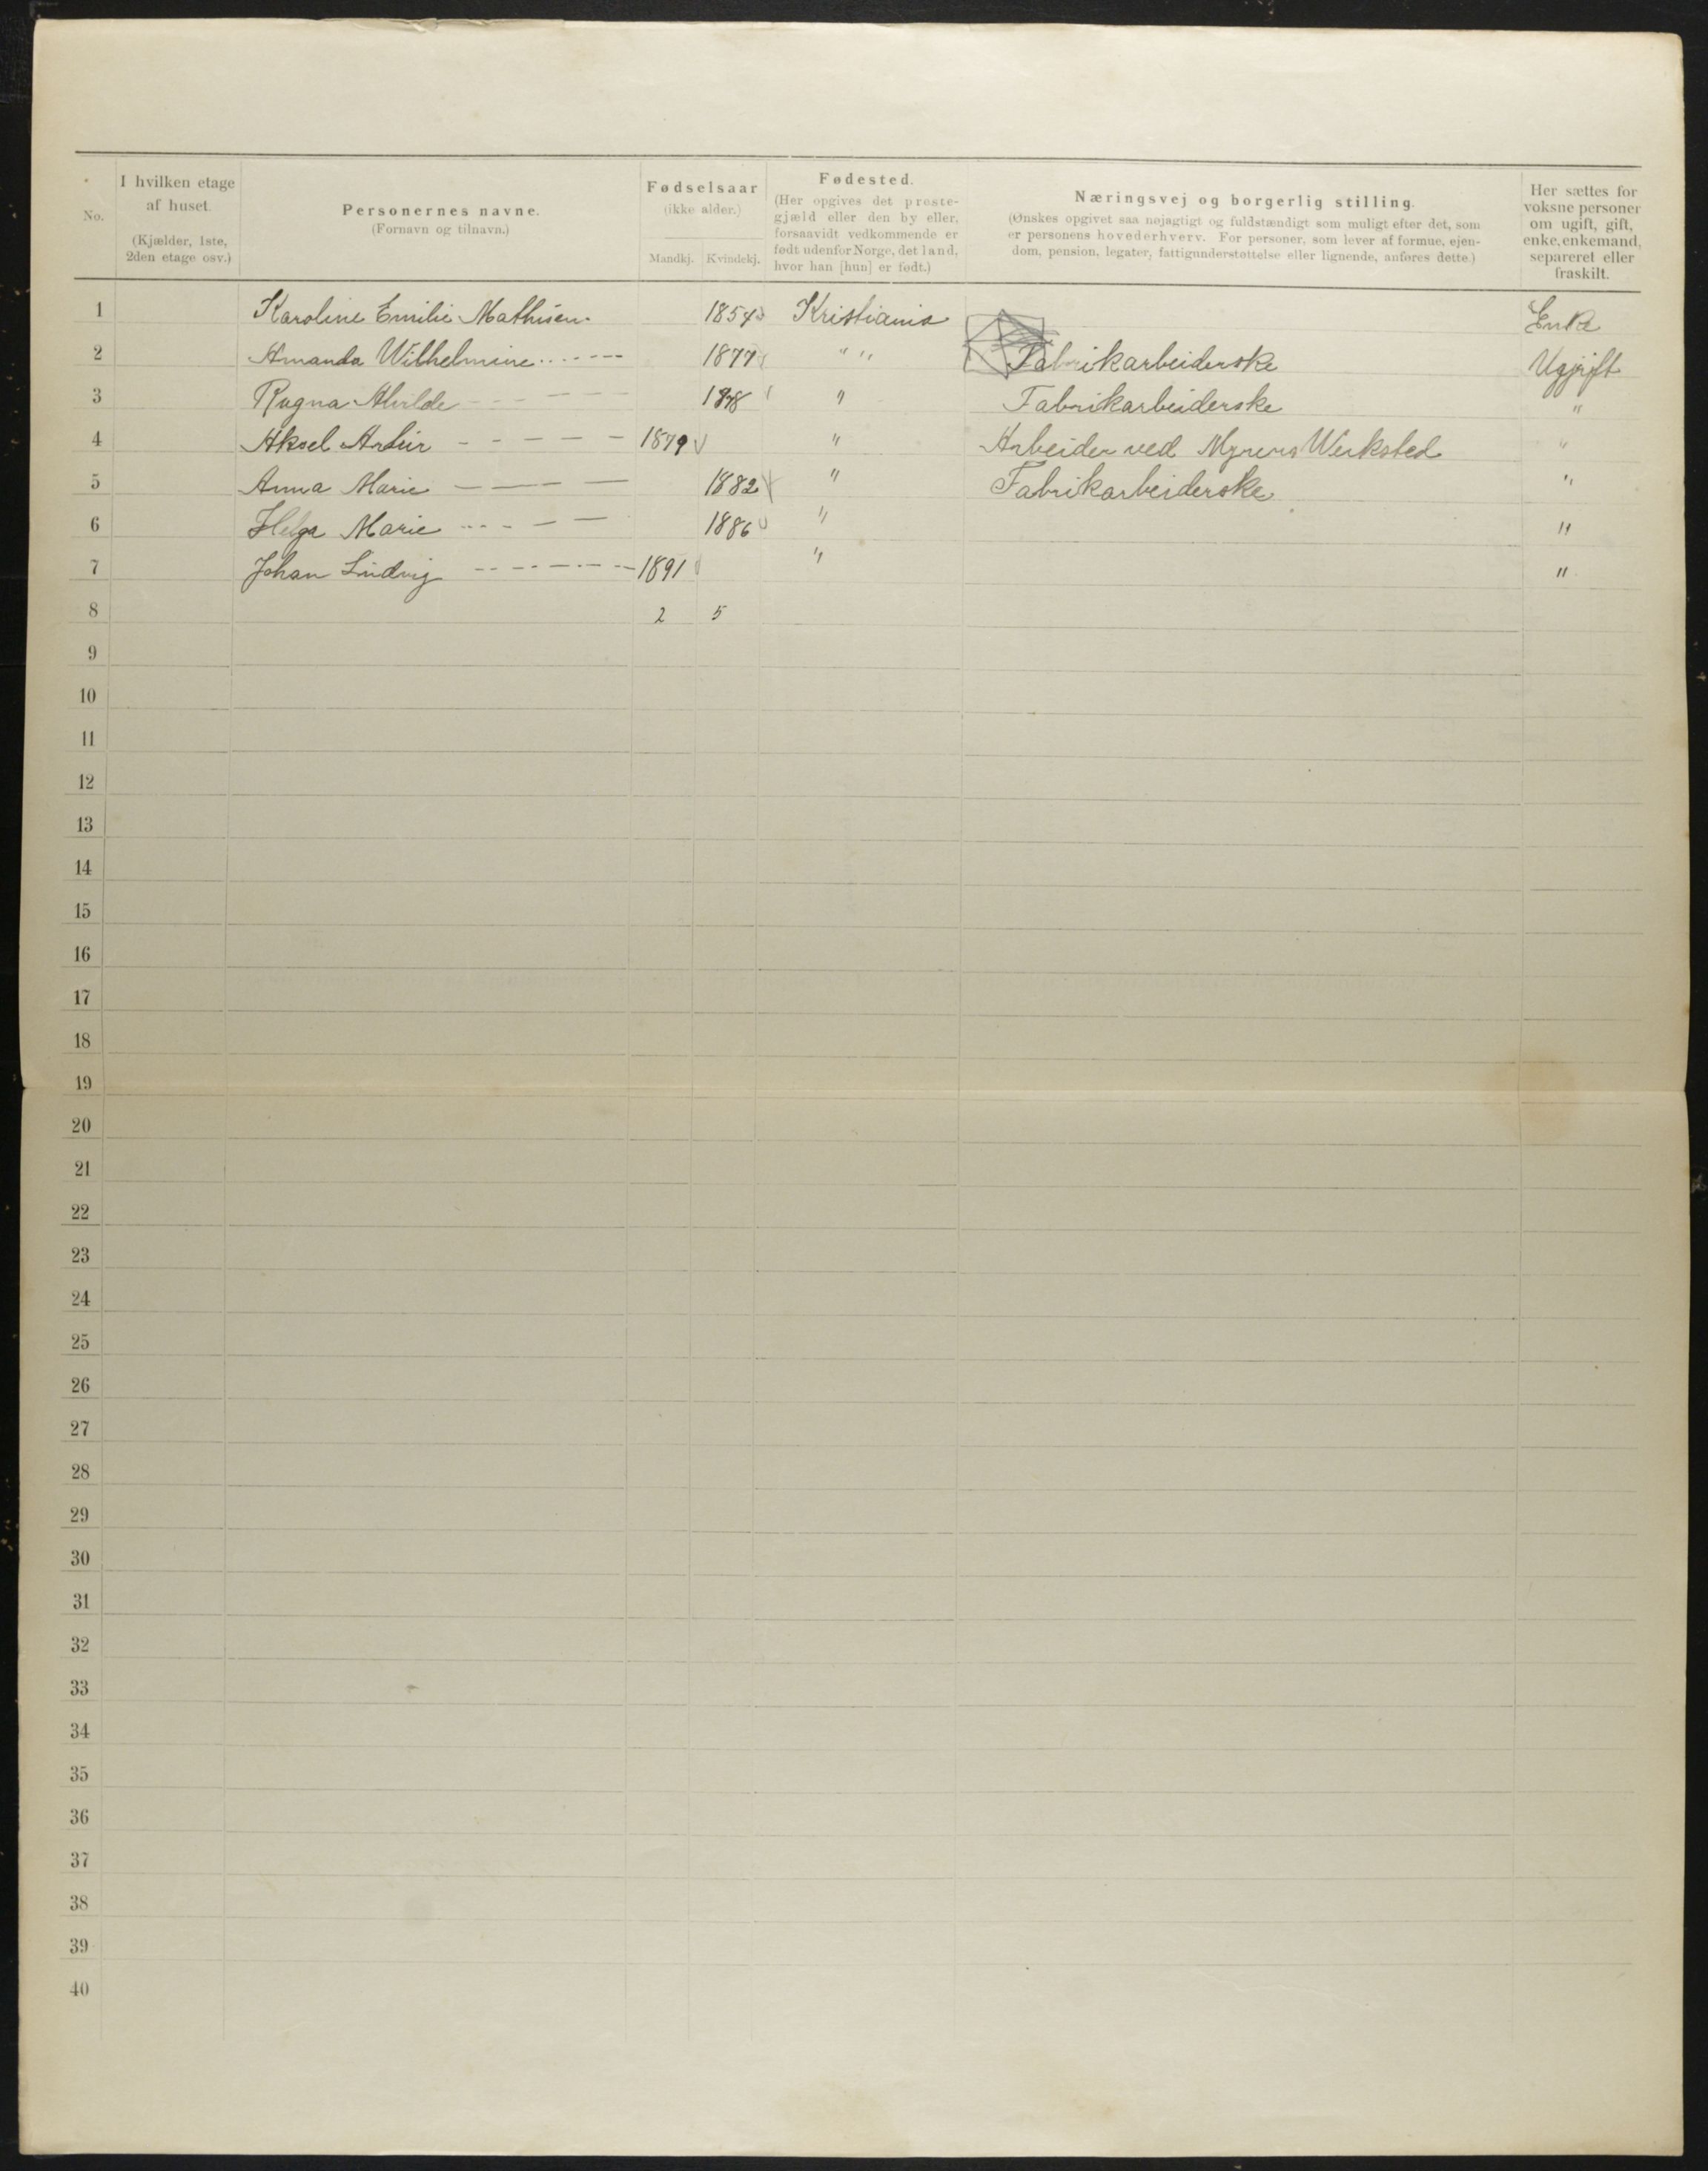 No.
I hvilken etage af huset.
(Kjælder, 1ste, 2den etage osv.)
Personernes navne.
(Fornavn og tilnavn.)
Fødselsaar
(ikke alder.)
Mandkj. Kvindekj.
Fødested.
(Her opgives det preste-
gjæld eller den by eller,
forsaavidt vedkommende er
født udenfor Norge, det land,
hvor han [hun] er født.)
Næringsvej og borgerlig stilling.
(Ønskes opgivet saa nøjagtigt og fuldstændigt som muligt efter det, som
er personens hovederhverv. For personer, som lever af formue, ejen-
dom, pension, legater, fattigunderstøttelse eller lignende, anføres dette.)
Her sættes for
voksne personer
om ugift, gift,
enke, enkemand,
separeret eller
fraskilt.
1 Karoline Emilie Mathisen. 1854 Kristiania Enke
2 Amanda Wilhelmine 1877 " " Fabrikarbeiderske Ugift
3 Ragna Alvilde 1878 " Fabrikarbeiderske "
4 Aksel Artur 1879 " Arbeider ved Myrens Werksted "
5 Anna Marie 1882 " Fabrikarbeiderske "
6 Helga Marie 1886 " "
7 Johan Ludvig 1891 " "
8 2 5
9
10
11
12
13
14
15
16
17
18
19
20
21
22
23
24
25
26
27
28
29
30
31
32
33
34
35
36
37
38
39
40